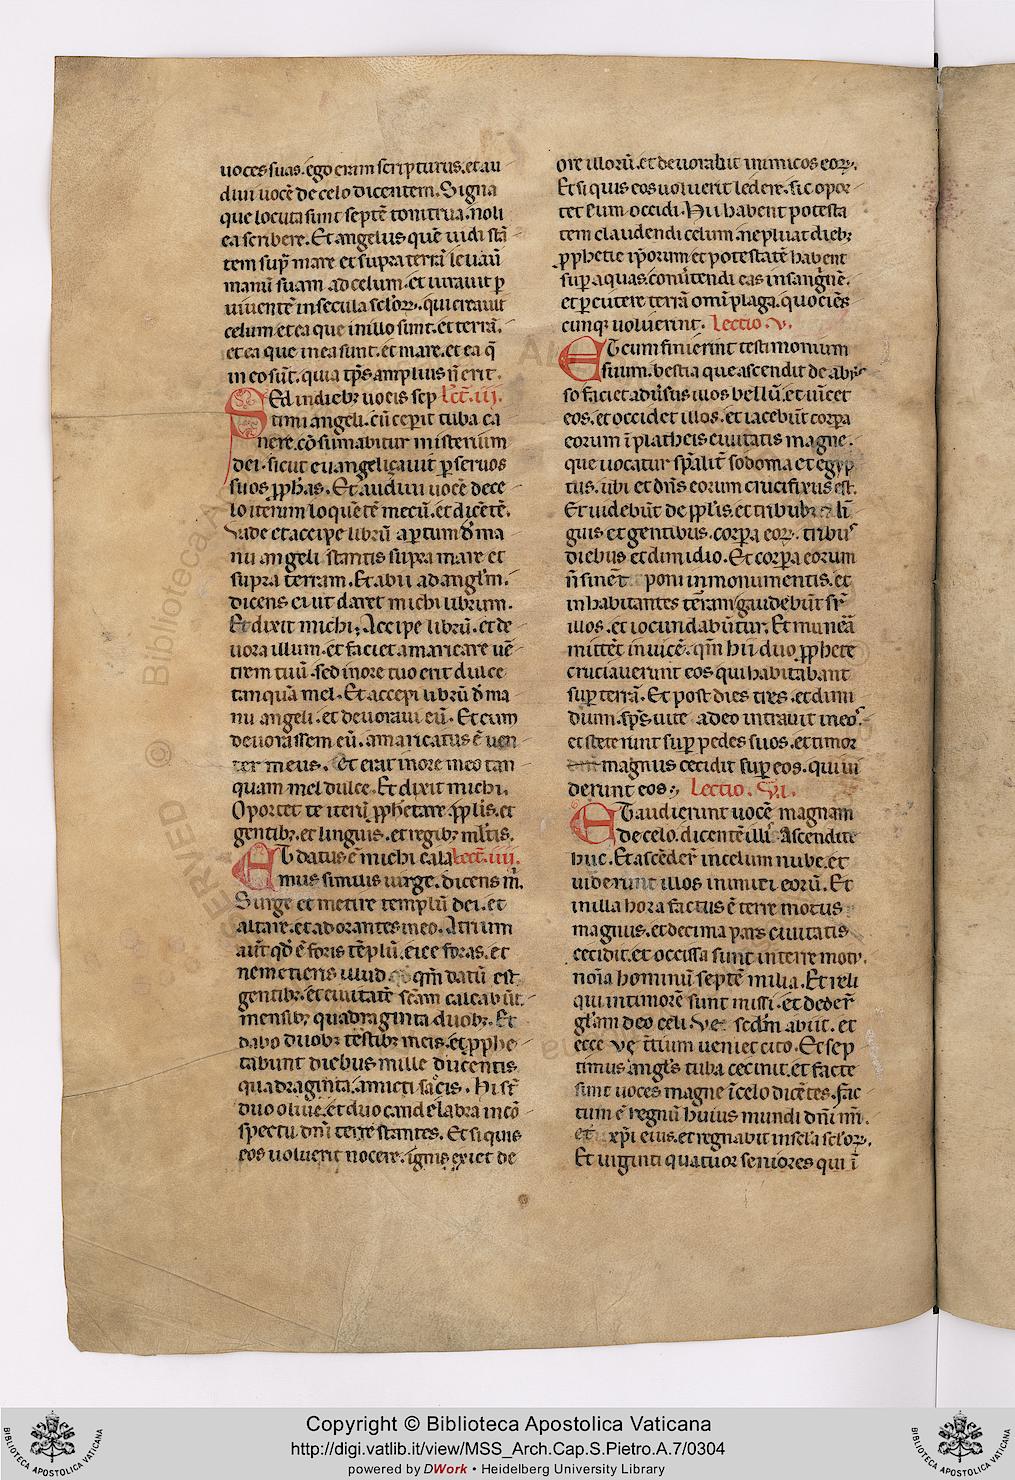 uoces suas. ego eram scripturus. et au
diui uocē de celo dicentem. Signa
que locuta sunt septē tonitrua. noli
ea scribere. Et angelus quē uidi stā
tem sup̄ mare et supra terrā leuauit
manū suam ad celum. et iurauit ꝑ
uiuentē in secula sclorꝝ. qui creauit
celum et ea que in illo sunt. et terrā.
et ea que in ea sunt. et mare. et ea q̄
in eo sūt. quia tp̄s amplius n̄ erit.
Sed in diebꝫ uocis sep lect̄. iii.
timi angeli. cū ceperit tuba ca
nere. cōsumabitur misterium
dei. sicut euangelizauit ꝑ seruos
suos ꝓph̄as. Et audiui uocē de ce
lo iterum loquētē mecū. et dicētē.
Vade et accipe librū apertum d̄ ma
nu angeli stantis supra mare et
supra terram. Et abii ad angl̄m.
dicens ei ut daret michi librum.
Et dixit michi; Accipe librū. et de
uora illum. et faciet amaricare uē
trem tuū. sed in ore tuo erit dulce
tanquā mel. Et accepi librū d̄ ma
nu angeli. et deuoraui eū. Et cum
deuorassem eū. amaricatus ē uen
ter meus. et erat in ore meo tan
quam mel dulce. Et dixit michi.
Oportet te iterū ꝓphetare ꝓplis. et
gentibꝫ. et linguis. et regibꝫ ml̄tis.
Et datus ē michi cala lect̄. iiii.
mus similis uirge. dicens m̄.
Surge et metire templū dei. et
altare. et adorantes in eo. Atrium
aūt qd̄ ē foris tēplū. eice foras. et
ne metieris illud. qm̄ datū est
gentibꝫ. et ciuitatē scām calcabūt
mensibꝫ quadraginta duobꝫ. Et
dabo duobꝫ testibꝫ meis. et ꝓphe
tabunt diebus mille ducentis
quadraginta. amicti saccis. Hi st̄
due oliue. et duo candelabra in cō
spectu dn̄i terre stantes. Et si quis
eos uoluerit nocere. ignis exiet de
ore illorū. et deuorabit inimicos eorꝝ.
Et si quis eos uoluerit ledere. sic opor
tet eum occidi. Hii habent potesta
tem claudendi celum. ne pluat diebꝫ
ꝓphetie ip̄orum et potestatē habent
super aquas. conuertendi eas in sanguinē.
et percutere terrā omi plaga. quociēs
cunqꝫ uoluerint. Lectio. v.
Et cum finierint testimonium
suum. bestia que ascendit de abis
so faciet aduersus illos bellū. et uincet
eos. et occidet illos. et iacebūt corpa
eorum ī plateis ciuitatis magne.
que uocatur sp̄alit̄ sodoma et egyp
tus. ubi et dn̄s eorum crucifixus est.
Et uidebūt de ꝓplis. et tribubꝫ. et lī
guis et gentibus. corpa eorꝝ. tribus
diebus et dimidio. Et corpa eorum
n̄ sinēt poni in monumentis. et
inhabitantes terram gaudebūt sr̄
illos. et iocundabūtur. Et munera
mittēt inuicē. qm̄ hii duo ꝓphete
cruciauerunt eos qui habitabant
super terrā. Et post dies tres. et dimi
dium. sp̄s uite a deo intrauit in eos.
et steterunt super pedes suos. et timor
magnus cecidit super eos. qui ui
derunt eos; Lectio. VI.
Et audierunt uocē magnam
de celo. dicentē illis Ascendite
huc. Et ascēder̄ in celum nube. et
uiderunt illos inimici eorū. Et
in illa hora factus ē terre motus
magnus. et decima pars ciuitatis
cecidit. et occissa sunt in terre motu
noīa hominū septē milia. Et reli
qui in timorē sunt missi. et deder̄
gl̄am deo celi. Ve scdm̄ abiit. et
ecce ve t̄tium ueniet cito. Et sep
timus angl̄s tuba cecinit. et facte
sunt uoces magne ī celo dicētes. fac
tum ē regnū huius mundi dn̄i nr̄i
et xp̄i eius. et regnabit in sc̄la sclorꝝ.
Et uiginti quatuor seniores qui ī
Copyright © Biblioteca Apostolica Vaticana
http://digi.vatlib.it/view/MSS_Arch.Cap.S.Pietro.A.7/0304
powered by DWork • Heidelberg University Library
BIBLIOTECA APOSTOLICA VATICANA
BIBLIOTECA APOSTOLICA VATICANA